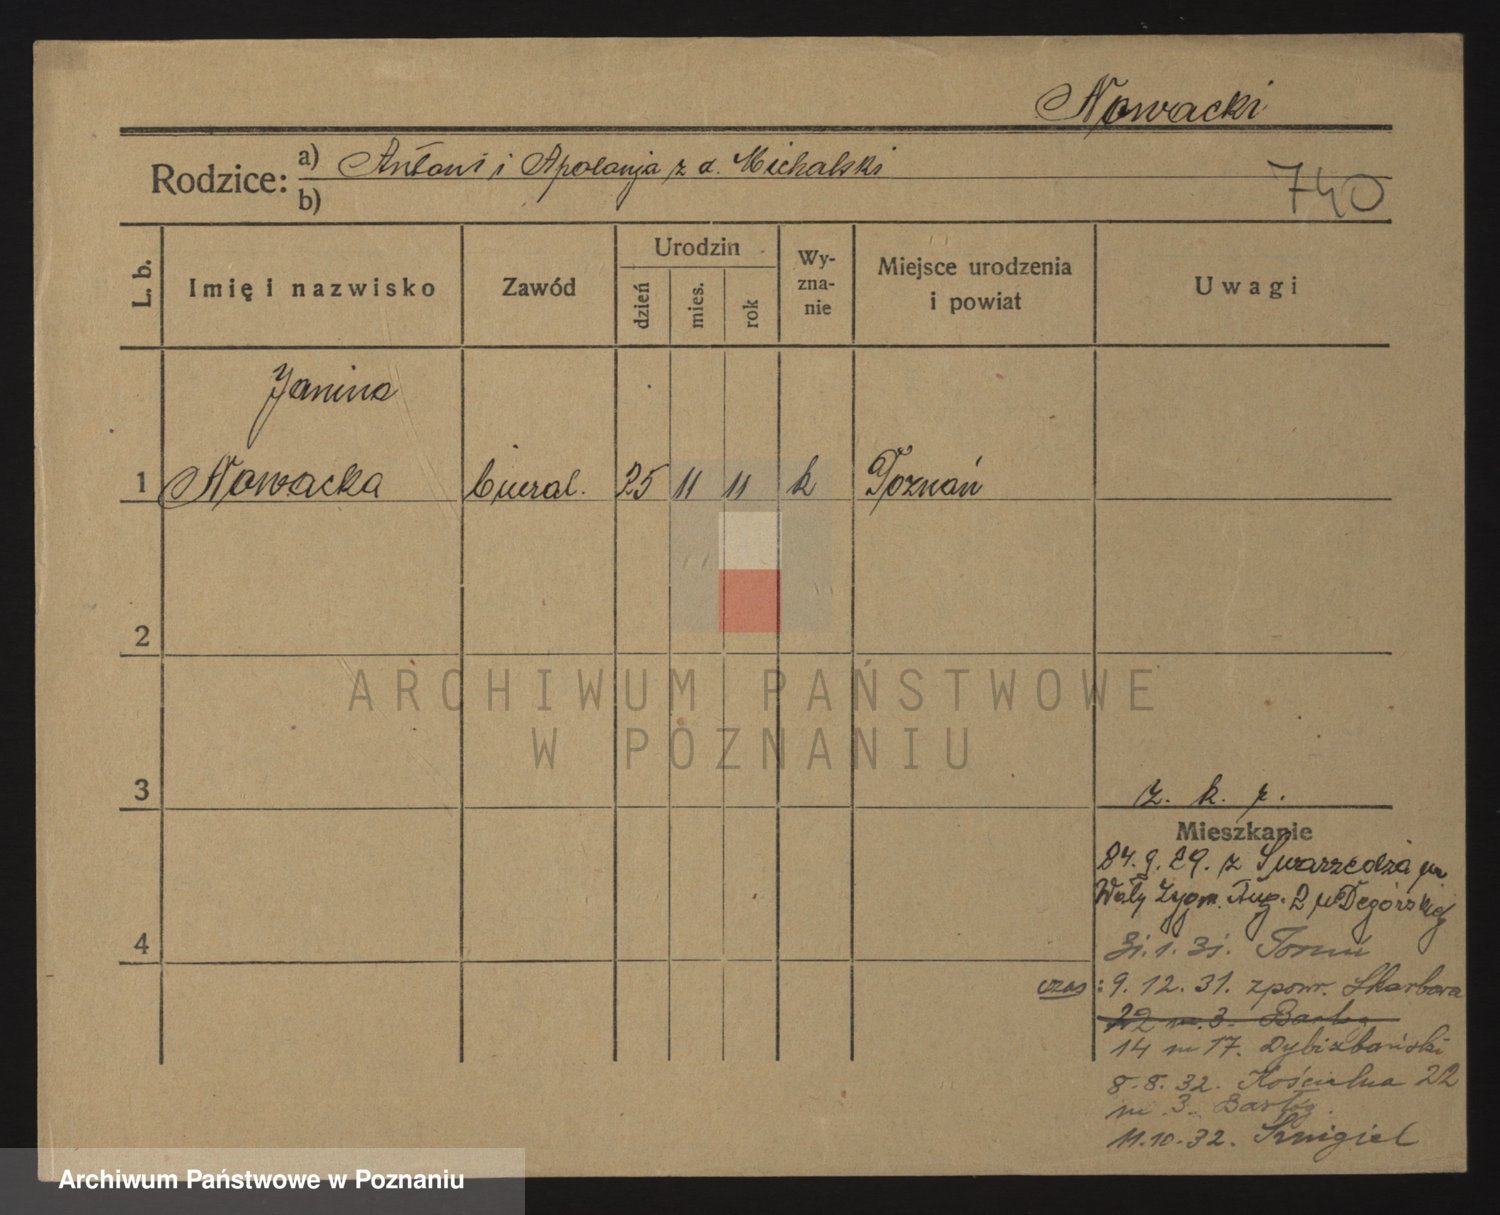 Nowacki
Rodzice: a) Antoni i Apolonja z d. Michalski
b)
740
L. b.
Imię i nazwisko
Zawód
Urodzin
dzień
mies.
rok
Wy-
zna-
nie
Miejsce urodzenia
i powiat
Uwagi
Janina
1 Nowacka 25 11 11 k Poznań
2
ARCHIWUM PAŃSTWOWE
W POZNANIU
3
z. k. p.
Mieszkanie
24.9.29. z Swarzędza
Wały Zygm. Aug. 2 u Degórskiej
4
31.1.31. Toruń
czas: 9.12.31. z powr. Skarbowa
22 m. 3. Bartog
14 m 17. Dybizbański
8.8.32. Kościelna 22
m. 3.
11.10.32. Śmigiel
Archiwum Państwowe w Poznaniu